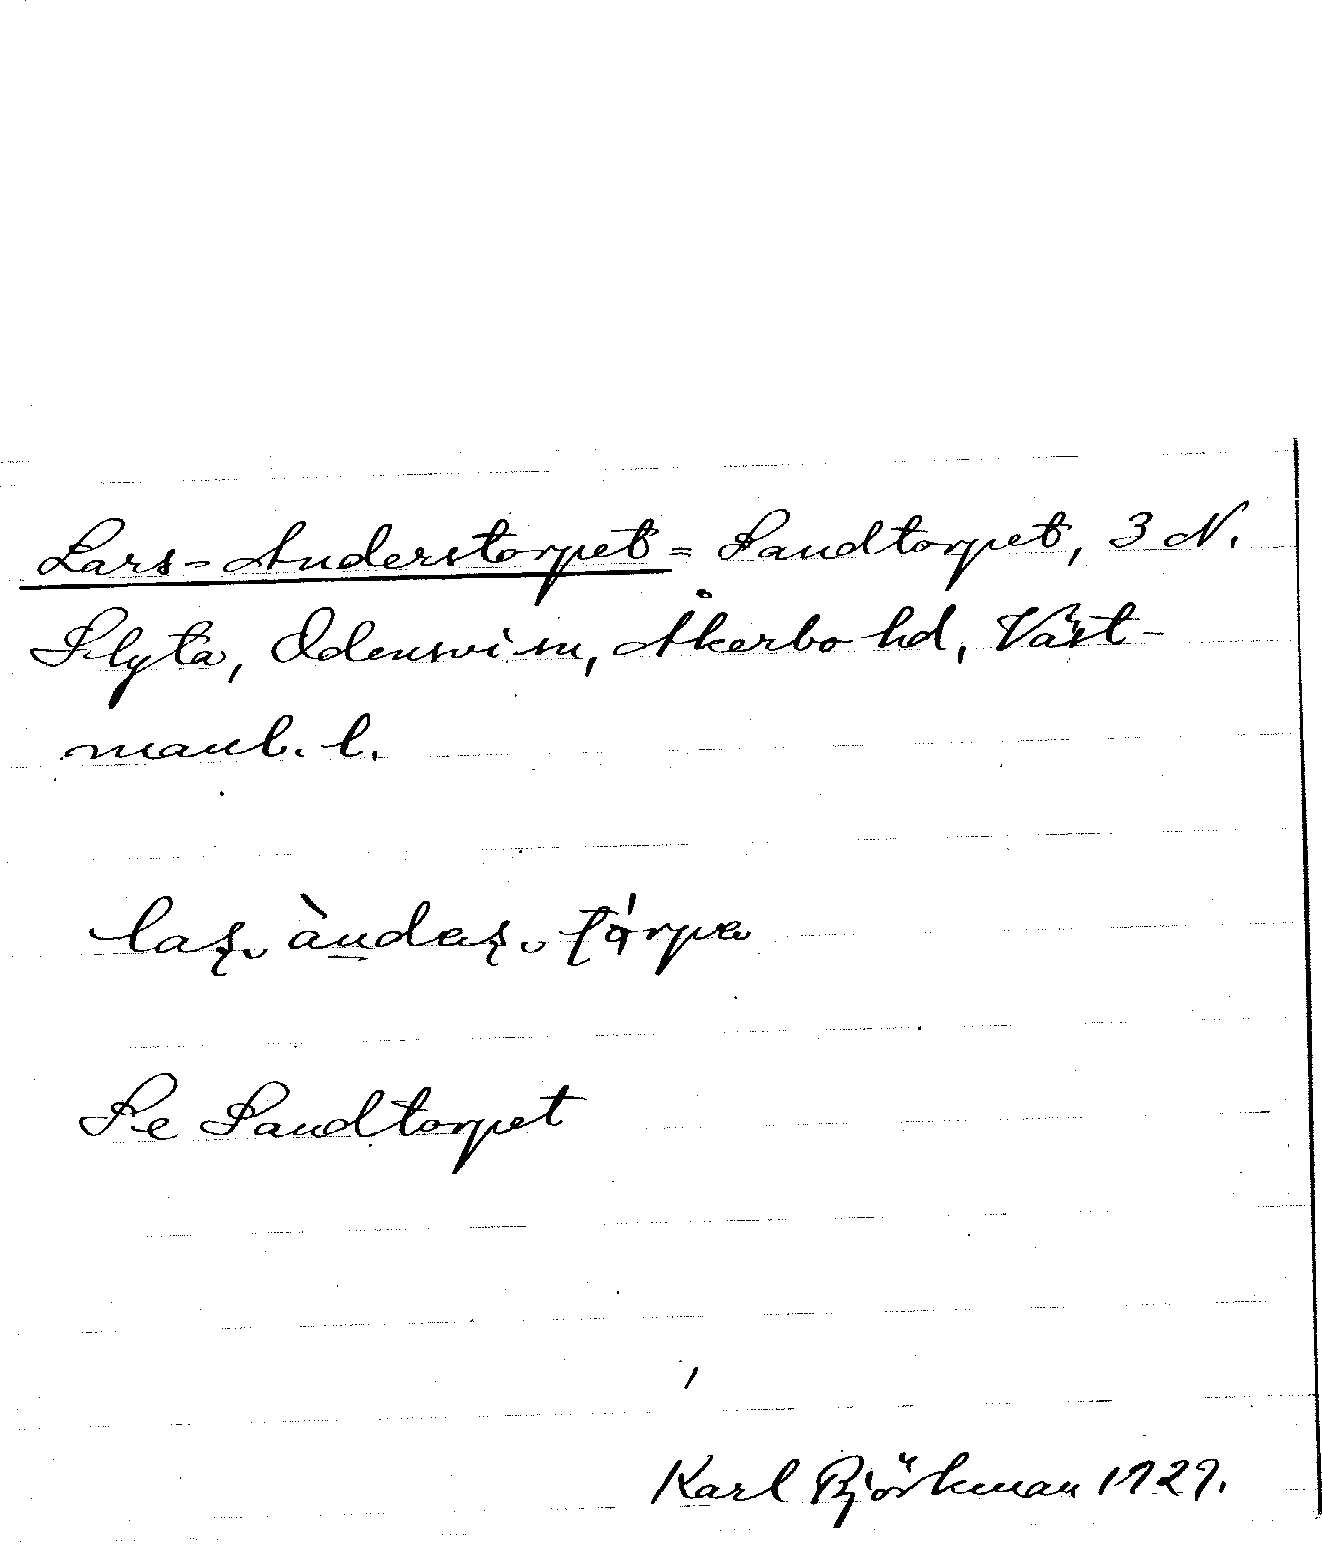 Lars-Anderstorpet = Sandtorpet, 3 N.
Slyta, Odensvi sn, Åkerbo hd, Väst-
manl. l.
Se Sandtorpet
Karl Björkman 1929.